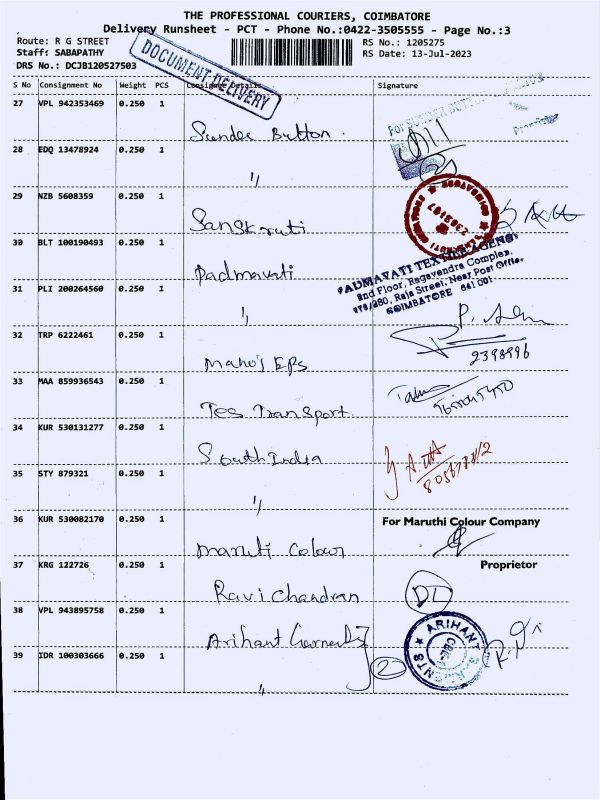 THE PROFESSIONAL COURIERS, COIMBATORE
Delivery Runsheet - PCT - Phone No.:0422-3505555 - Page No.:3
Route: R G STREET
RS No.: 1205275
Staff: SABAPATHY
RS Date: 13-Jul-2023
DRS No.: DCJB120527503
DOCUMENT DELIVERY
S No Consignment No Weight PCS Consignee Details Signature
27 VPL 942353469 0.250 1
Sunder Button
28 EDQ 13478924 0.250 1
"
29 NZB 5608359 0.250 1
Sanskruti
30 BLT 100190493 0.250 1
Padmavati
PADMAVATI TEXTILE AGENSY
2nd Floor, Ragavendra Complex,
Raja Street, Near Post Office,
COIMBATORE 641 001
31 PLI 200264560 0.250 1
"
32 TRP 6222461 0.250 1
Manoj EPS
2398896
33 MAA 859936543 0.250 1
Tes Transport
34 KUR 530131277 0.250 1
South India
35 STY 879321 0.250 1
"
36 KUR 530082170 0.250 1
Maruti Colour
For Maruthi Colour Company
Proprietor
37 KRG 122726 0.250 1
Ravi Chandran
38 VPL 943895758 0.250 1
Arihant Garments
2
ARIHANT
39 IDR 100303666 0.250 1
"